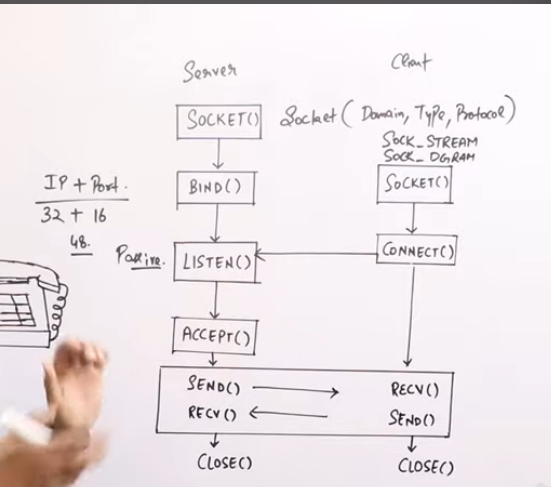 Server
Client
SOCKET()
Socket ( Domain, Type, Protocol )
SOCK_STREAM
SOCK_DGRAM
IP + Port.
32 + 16
48.
BIND()
SOCKET()
Passive.
LISTEN()
CONNECT()
ACCEPT()
SEND()
RECV()
RECV()
SEND()
CLOSE()
CLOSE()